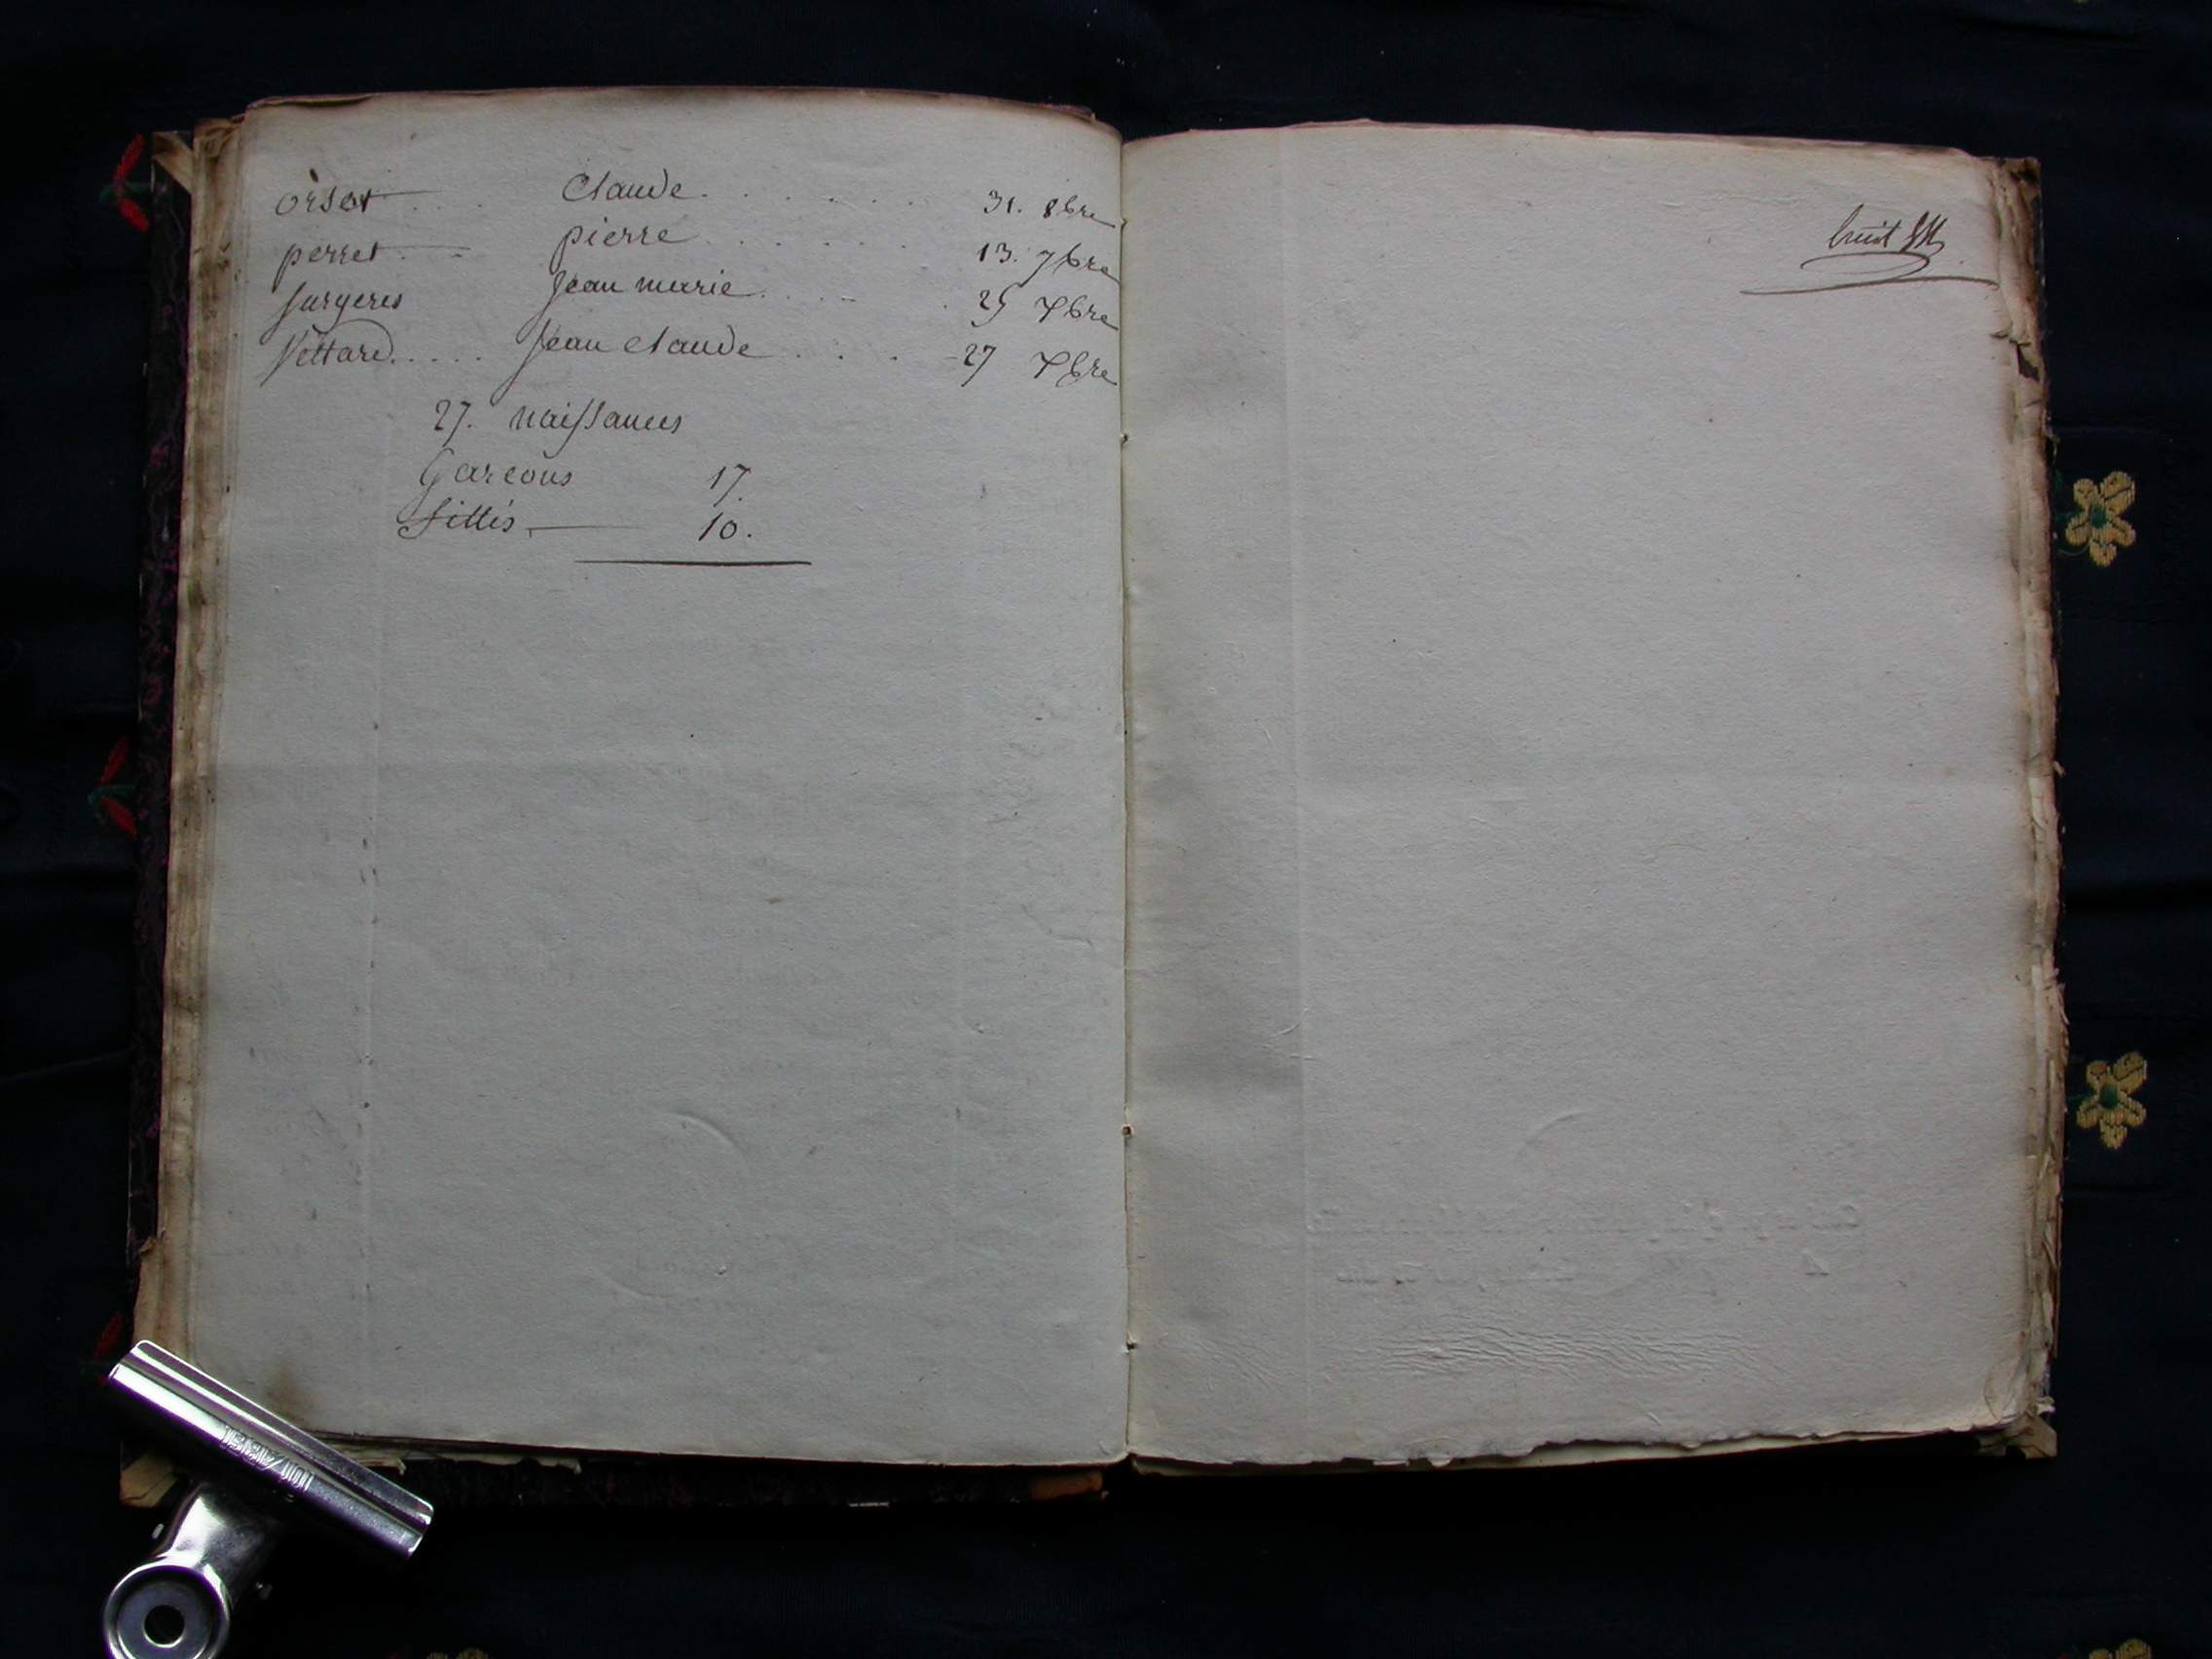 orset Claude 31. 8bre
perret pierre 13. 7bre
surgeres Jean marie 25 7bre
Vettard Jean Claude 27 7bre
27. naissances
Garcons 17.
filles 10.
huit